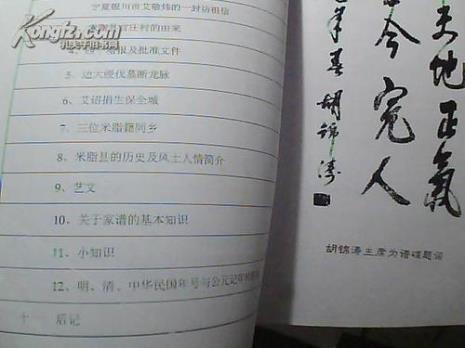 宁夏银川市艾敬炜的一封访祖信
官庄村的由来
报及批准文件
5、边大绶伐墓断龙脉
6、艾诏捐生保全城
7、三位米脂籍同乡
8、米脂县的历史及风土人情简介
9、艺文
10、关于家谱的基本知识
11、小知识
12、明、清、中华民国年号与公元记年
十一 后记
天地正气
古今完人
胡锦涛
胡锦涛主席为谱碟题词
Kongfz.com
孔夫子旧书网